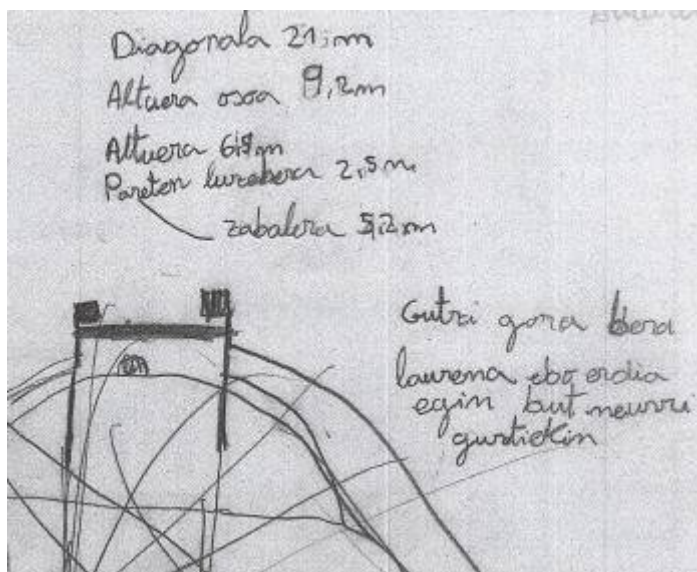 Diagonala 21 m
Altuera osoa 9,2m
Altuera 6,9m
Pareten luzabera 2,5 m
zabalera 5,2 m
Gutxi gora bera
laurena edo erdia
egin but neurri
guztiekin